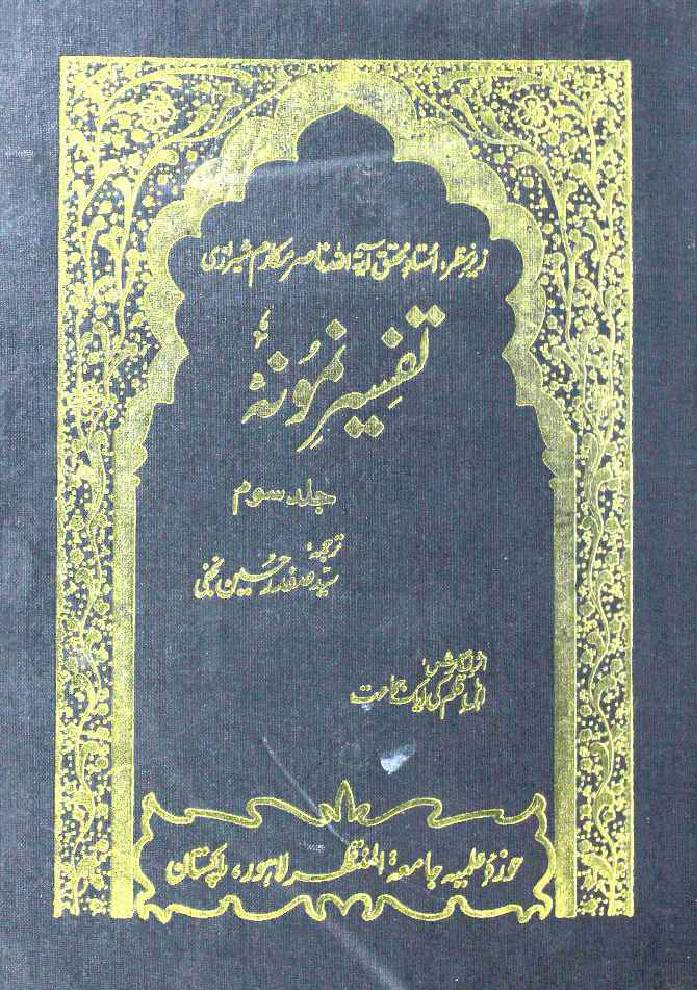 زیر نظر: استاد محقق آیة اللہ ناصر مکارم شیرازی
تفسیر نمونہ
جلد سوم
ترجمہ:
سید صفدر حسین نجفی
از نگارش:
اہل قلم کی ایک جماعت
حوزہ علمیہ جامعۃ المنتظر لاہور، پاکستان